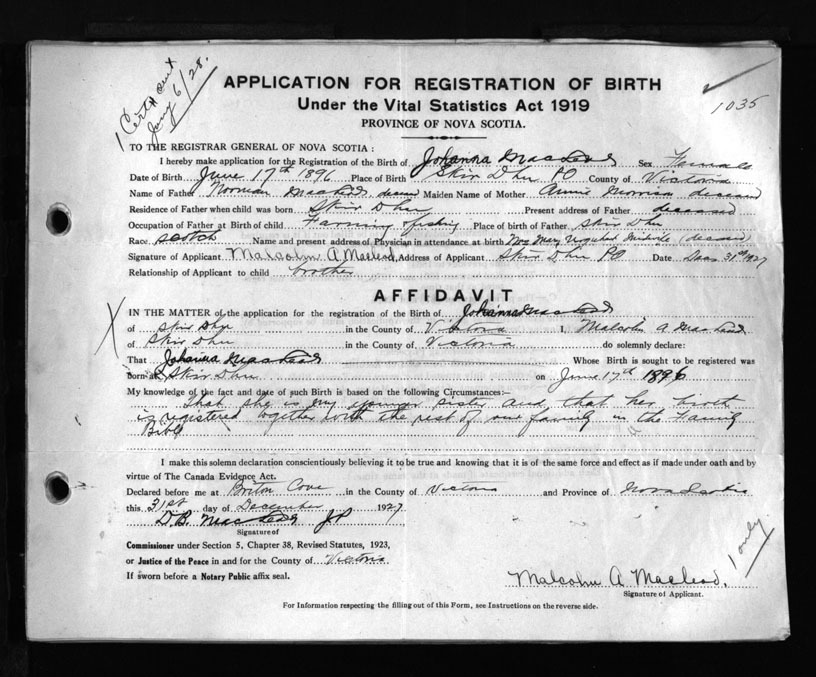 1 Cert sent
Jany 6/28.
APPLICATION FOR REGISTRATION OF BIRTH
Under the Vital Statistics Act 1919
PROVINCE OF NOVA SCOTIA.
1035
TO THE REGISTRAR GENERAL OF NOVA SCOTIA:
I hereby make application for the Registration of the Birth of Johanna MacLeod Sex Female
Date of Birth June 17th 1896 Place of Birth Skir Dhu PO County of Victoria
Name of Father Norman MacLeod Maiden Name of Mother Annie Morrison deceased
Residence of Father when child was born Skir Dhu Present address of Father deceased
Occupation of Father at Birth of child Farming fishing Place of birth of Father Skir Dhu
Race Scotch Name and present address of Physician in attendance at birth Mrs Mary Midwife (deceased)
Signature of Applicant Malcolm A Macleod, Address of Applicant Skir Dhu PO Date 31st 1927
Relationship of Applicant to child brother
AFFIDAVIT
IN THE MATTER of the application for the registration of the Birth of Johanna MacLeod
of Skir Dhu in the County of Victoria I, Malcolm A MacLeod
of Skir Dhu in the County of Victoria do solemnly declare:
That Johanna MacLeod Whose Birth is sought to be registered was
born at Skir Dhu on June 17th 1896
My knowledge of the fact and date of such Birth is based on the following Circumstances:
That she is my younger sister and that her birth
is registered together with the rest of our family in the Family
Bible
I make this solemn declaration conscientiously believing it to be true and knowing that it is of the same force and effect as if made under oath and by
virtue of The Canada Evidence Act.
Declared before me at Briton Cove in the County of Victoria and Province of Nova Scotia
this 31st day of December 1927
D.B. MacLeod JP
Signature of
Commissioner under Section 5, Chapter 38, Revised Statutes, 1923,
or Justice of the Peace in and for the County of Victoria
If sworn before a Notary Public affix seal.
1 only
Malcolm A Macleod,
Signature of Applicant.
For Information respecting the filling out of this Form, see Instructions on the reverse side.